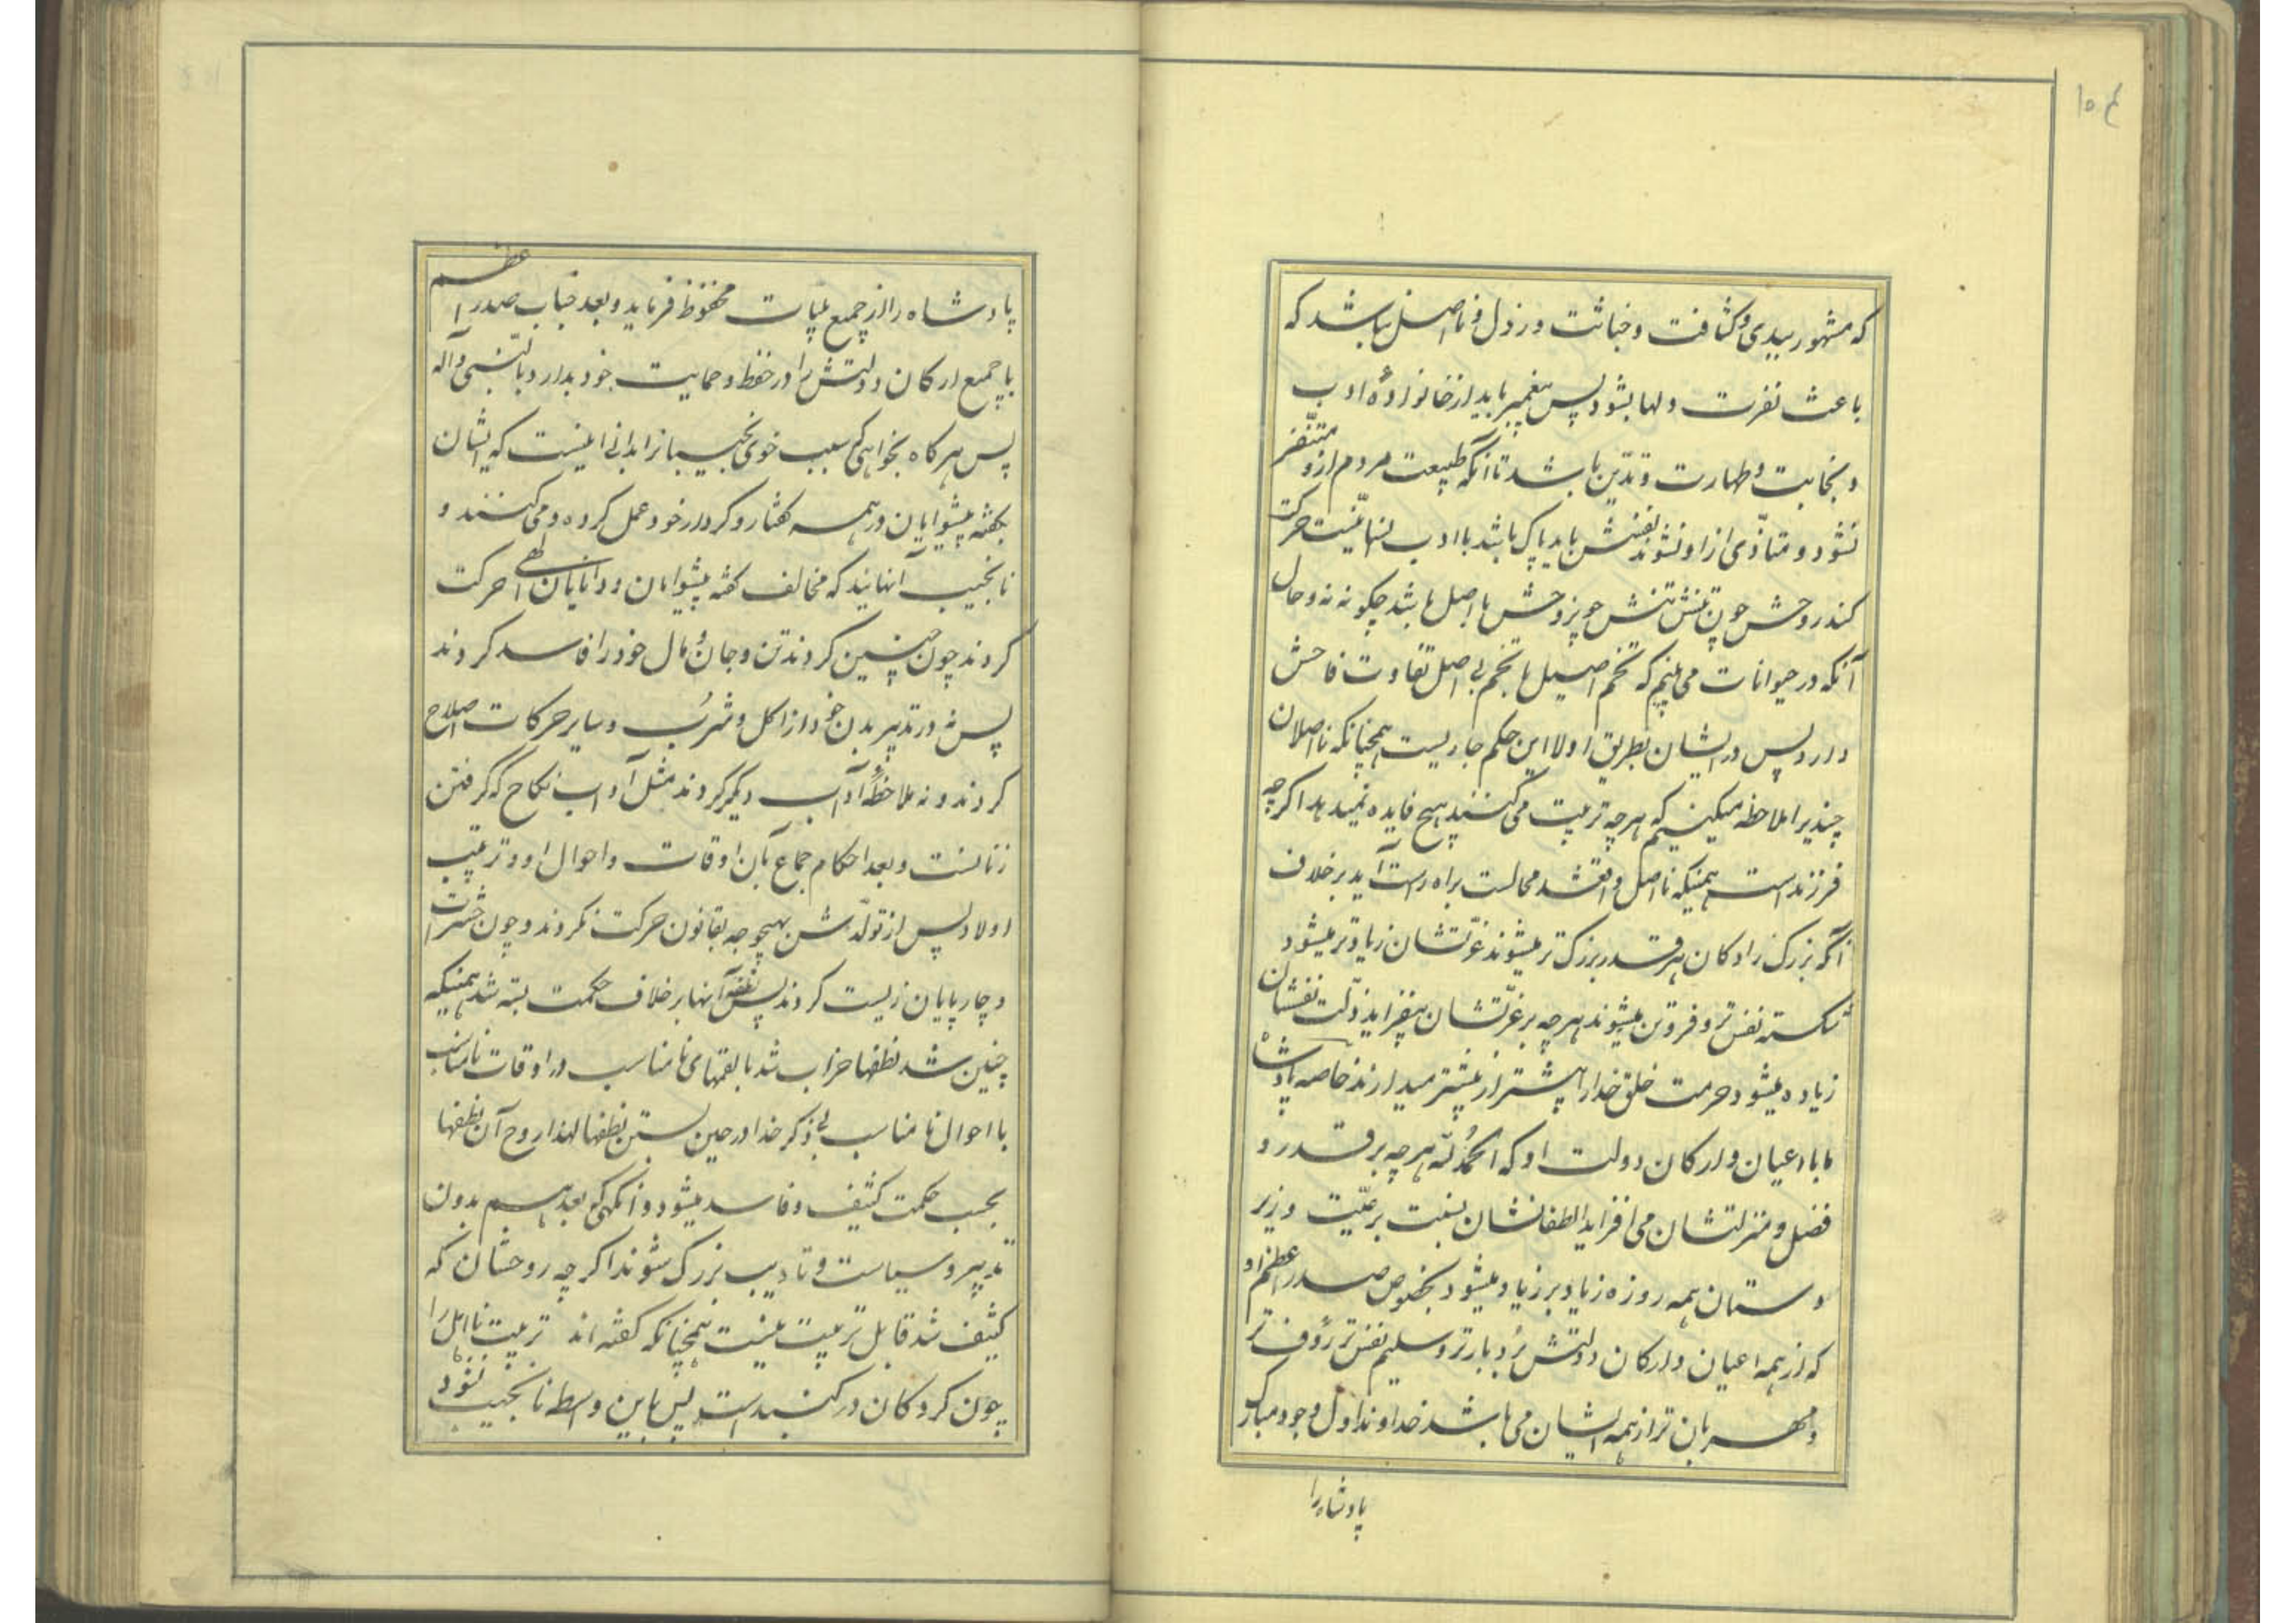 ۱۵۴
که مشهور ببدی و کثافت و خباثت و رذل و نا اصل باشد که
باعث نفرت دلها بشود پس پیغمبر باید از خانواده ادب
و نجابت و طهارت و تدین باشد تا آنکه طبیعت مردم از و متنفر
نشود و متأذی از او نشوند نفسش باید پاک باشد با ادب انسانیت حرکت
کند روحش چون تنش تنش چو روحش با اصل باشد چگونه نه و حال
آنکه در حیوانات می بینیم که تخم اصیل با تخم بی اصل تفاوت فاحش
دارد پس در ایشان بطریق اولا این حکم جاریست همچنانکه نا اصلان
چند را ملاحظه میکنیم که هر چه تربیت می کنند هیچ فایده نمیدهد اگر چه
فرزند است همینکه نا اصل واقع شد محالست براه راست آید بر خلاف
آنکه بزرگ زادگان هر قدر بزرگ تر میشوند عزتشان زیادتر میشود
شکسته نفس تر و فروتن میشوند هر چه بر عزتشان میفزاید ذلت نفسشان
زیاده میشود حرمت خلق خدا را بیشتر از پیشتر میدارند خاصه پادشاه
ما با اعیان و ارکان دولت او که الحمد لله هر چه بر قدر و
فضل و منزلتشان می افزاید الطفاتشان نسبت برعیت و زیر
دستان همه روزه زیاد بر زیاد میشود بخصوص صدر اعظم او
که از همه اعیان و ارکان دولتش بردبارتر و سلیم نفس تر رؤف تر
و مهربان تر از همه ایشان می باشد خداوند اول وجود مبارک
پادشاه را
پادشاه را از جمیع بلیات محفوظ فرماید و بعد جناب صدر اعظم
با جمیع ارکان دولتش را در حفظ و حمایت خود بدارد بالنبی و آله
پس هر گاه بخواهی سبب خوی نجیبها را بدانی اینست که ایشان
بگفته پیشوایان در همه گفتار و کردار خود عمل کرده و می کنند و
نا نجیب آنهایند که مخالف گفته پیشوایان و دانایان الهی حرکت
کردند چون چنین کردند تن و جان و مال خود را فاسد کردند
پس نه در تدبیر بدن خود از اکل و شرب و سایر حرکات اصلاح
کردند و نه ملاحظه آداب دیگر کردند مثل آداب نکاح که گرفتن
زنانست و بعد احکام جماع بآن اوقات و احوال او و ترتیب
اولاد پس از تولد شدن بهیچوجه بقانون حرکت نکردند و چون حشرات
و چارپایان زیست کردند پس نطفه آنها بر خلاف حکمت بسته شد همینکه
چنین شد نطفها خراب شد با لقمهای نا مناسب در اوقات نامناسب
با احوال نا مناسب بی ذکر خدا در حین بستن نطفها لهذا روح آن نطفها
بحسب حکمت کثیف و فاسد میشود و آنگهی بعد هم بدون
تدبیر و سیاست و تادیب بزرگ شوند اگر چه روحشان که
کثیف شد قابل تربیت نیست همچنانکه گفته اند تربیت نا اهل را
چون گردکان در گنبد است پس باین واسطه نا نجیب شود